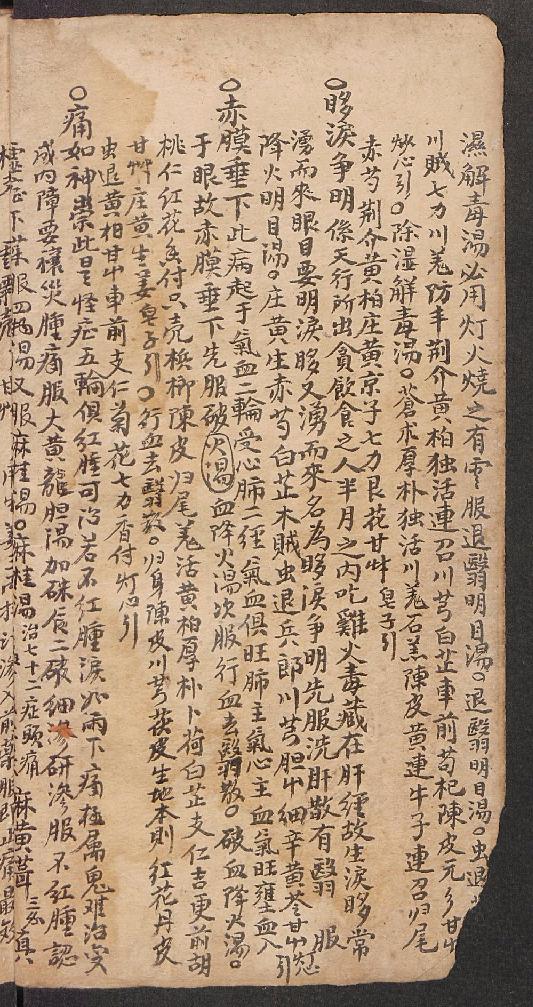 濕解毒湯必用灯火燒之有雲服退翳明目湯。退翳明目湯。虫退
川賊七力川羌防丰荆介黄柏独活連召川芎白芷車前苟杞陳皮元乡甘屮
灯心引。除湿解毒湯。蒼术厚朴独活川羌石羔陳皮黄連牛子連召归尾
赤芍荆介黄柏庄黄京子七力艮花甘艸皂子引
○眵淚争明係天行所出貪飲食之人半月之内吃雞火毒藏在肝經故生淚眵常
湧而來眼目要明淚眵又湧而來名為眵淚争明先服洗肝散有翳服
降火明目湯。庄黄生赤芍白芷木賊虫退兵郎川芎胆屮細辛黄芩甘屮灯心引
○赤膜垂下此病起于氣血二輪受心肺二經氣血俱旺肺主氣心主血氣旺壅血入
于眼故赤膜垂下先服破血降火湯次服行血去翳散。破血降火湯。
桃仁红花香付只壳梹榔陳皮归尾羌活黄柏厚朴卜荷白芷支仁吉更前胡
甘艸庄黄生姜皂子引。行血去翳散。归身陳皮川芎茯皮生地本則红花丹皮
虫退黄柏甘屮車前支仁菊花七力香付灯心引
○痛如神祟此是怪症五輪俱红腫可治若不红腫淚如雨下痛極属鬼难治安
成内障要禳災腫痛服大黄龍胆湯加硃辰二碌細研滲服不红腫認
虚症下蘇眼四物湯又服麻桂湯。麻桂湯治七十二症頭痛